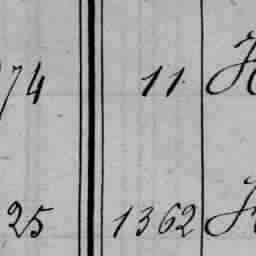 74 11 H
25 1362